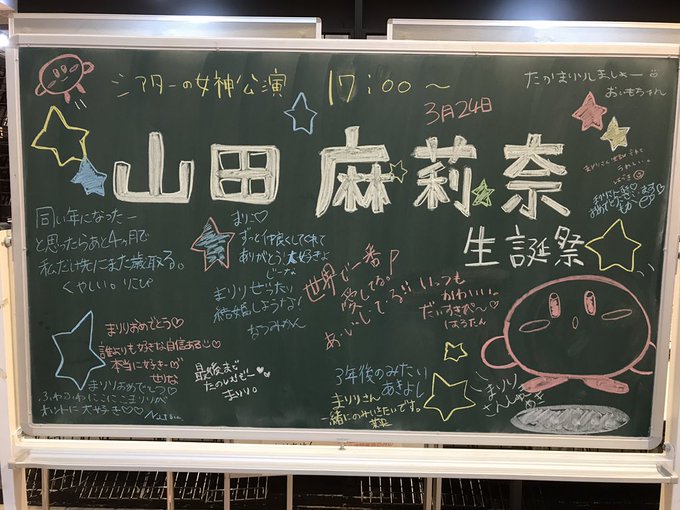 シアターの女神公演 17:00～
3月24日
山田 麻莉奈
生誕祭
たかまりりしましゃー
おいもちゃん
同い年になったー
と思ったらあと4ヵ月で
私だけ先にまた歳取る。
くやしい。りこぴ
まりこ♡
ずっと仲良くしてくれて
ありがとう 大好きよ
じーな
まりり ぜったい
結婚しような!
なつみかん
世界で一番
愛してる♪
あいしてる
いつも
かわいい。
だいすき
はうたん
まりりおめでとう♡
誰よりも好きな自信ある
本当に好き
せりな
まりりおめでとう♡
ふわふわにこにこまりりが
ホントに大好き♡♡
最後まで
たのしむぞー
まりり。
3年後のみたい
あきよし
まりりさん
一緒にのみいきたいです。
まりり
さんじゅう